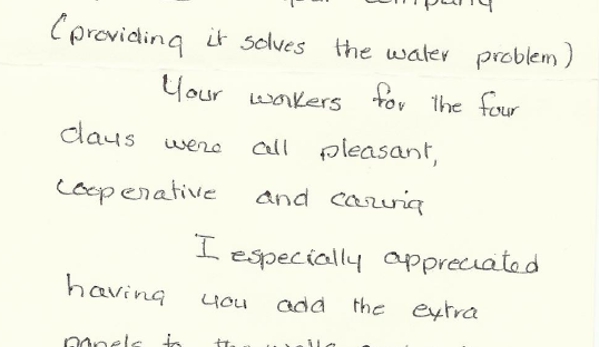 company
(providing it solves the water problem)
Your workers for the four
days were all pleasant,
cooperative and caring
I especially appreciated
having you add the extra
panels to the walls